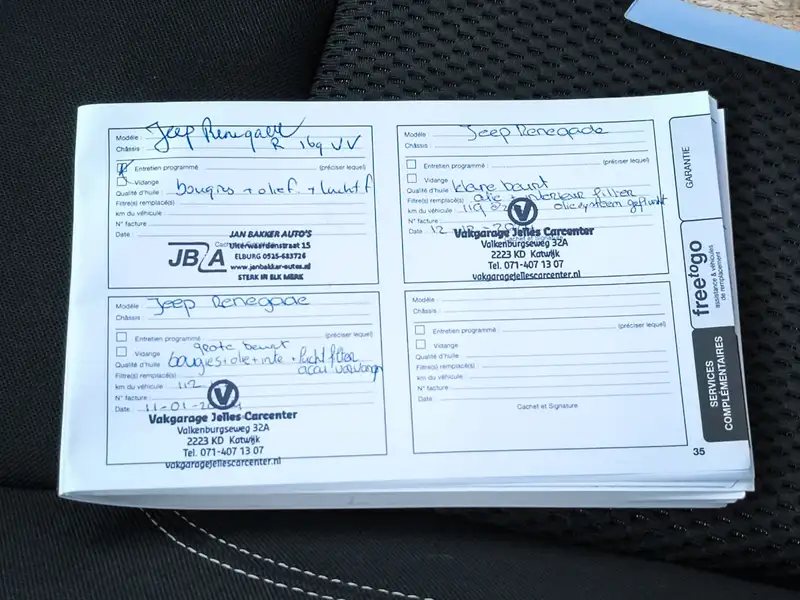 Modèle: Jeep Renegade
Châssis: R 169 VV
Entretien programmé (préciser lequel)
Vidange
Qualité d'huile: bougies + olief + lucht f
Filtre(s) remplacé(s)
km du véhicule
N° facture
Date
JAN BAKKER AUTO'S
Uiterwaardenstraat 15
JB/A ELBURG 0525-683726
www.janbakker-autos.nl
STERK IN ELK MERK
Modèle: Jeep Renegade
Châssis:
Entretien programmé (préciser lequel)
Vidange
Qualité d'huile: kleine beurt
Filtre(s) remplacé(s) olie + interieur filter
km du véhicule 119 oliesysteem geflusht
N° facture
Date: 12
Vakgarage Jelles Carcenter
Valkenburgseweg 32A
2223 KD Katwijk
Tel. 071-407 13 07
vakgaragejellescarcenter.nl
Modèle: Jeep Renegade
Châssis:
Entretien programmé (préciser lequel)
grote beurt
Vidange
Qualité d'huile: bougies + olie + inte + lucht filter
Filtre(s) remplacé(s) accu vervangen
km du véhicule 112
N° facture
Date: 11-01-
Vakgarage Jelles Carcenter
Valkenburgseweg 32A
2223 KD Katwijk
Tel. 071-407 13 07
vakgaragejellescarcenter.nl
Modèle:
Châssis:
Entretien programmé (préciser lequel)
Vidange
Qualité d'huile:
Filtre(s) remplacé(s)
km du véhicule
N° facture
Date:
Cachet et Signature
GARANTIE
freetogo
assistance & véhicules
de remplacement
SERVICES
COMPLÉMENTAIRES
35